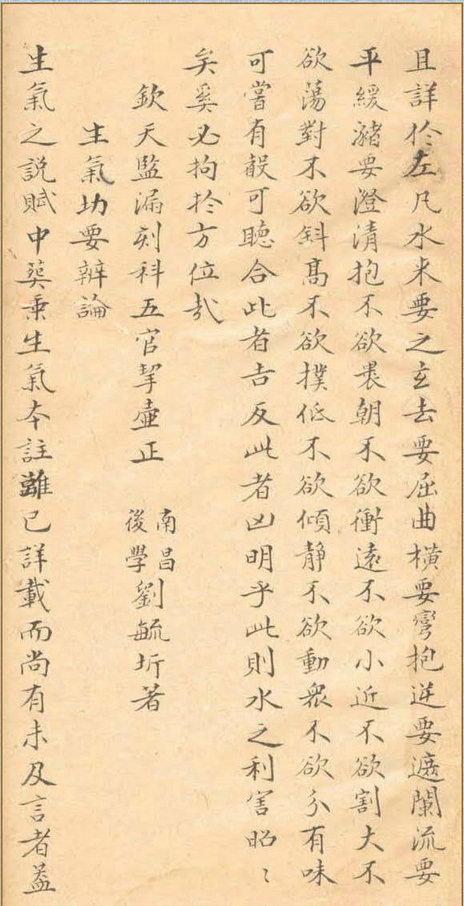 且詳於左凡水来要之玄去要屈曲橫要彎抱逆要遮闌流要
平緩瀦要澄清抱不欲裹朝不欲衝遠不欲小近不欲割大不
欲蕩對不欲斜髙不欲撲低不欲傾静不欲動衆不欲分有味
可嘗有聲可聽合此者吉反此者凶明乎此則水之利害昭〻
矣奚必拘扵方位哉
欽天監漏刻科五官挈壷正
南昌
後學
劉毓圻著
生氣功要辨論
生氣之説賦中葬乗生氣夲註雖已詳載而尚有未及言者葢